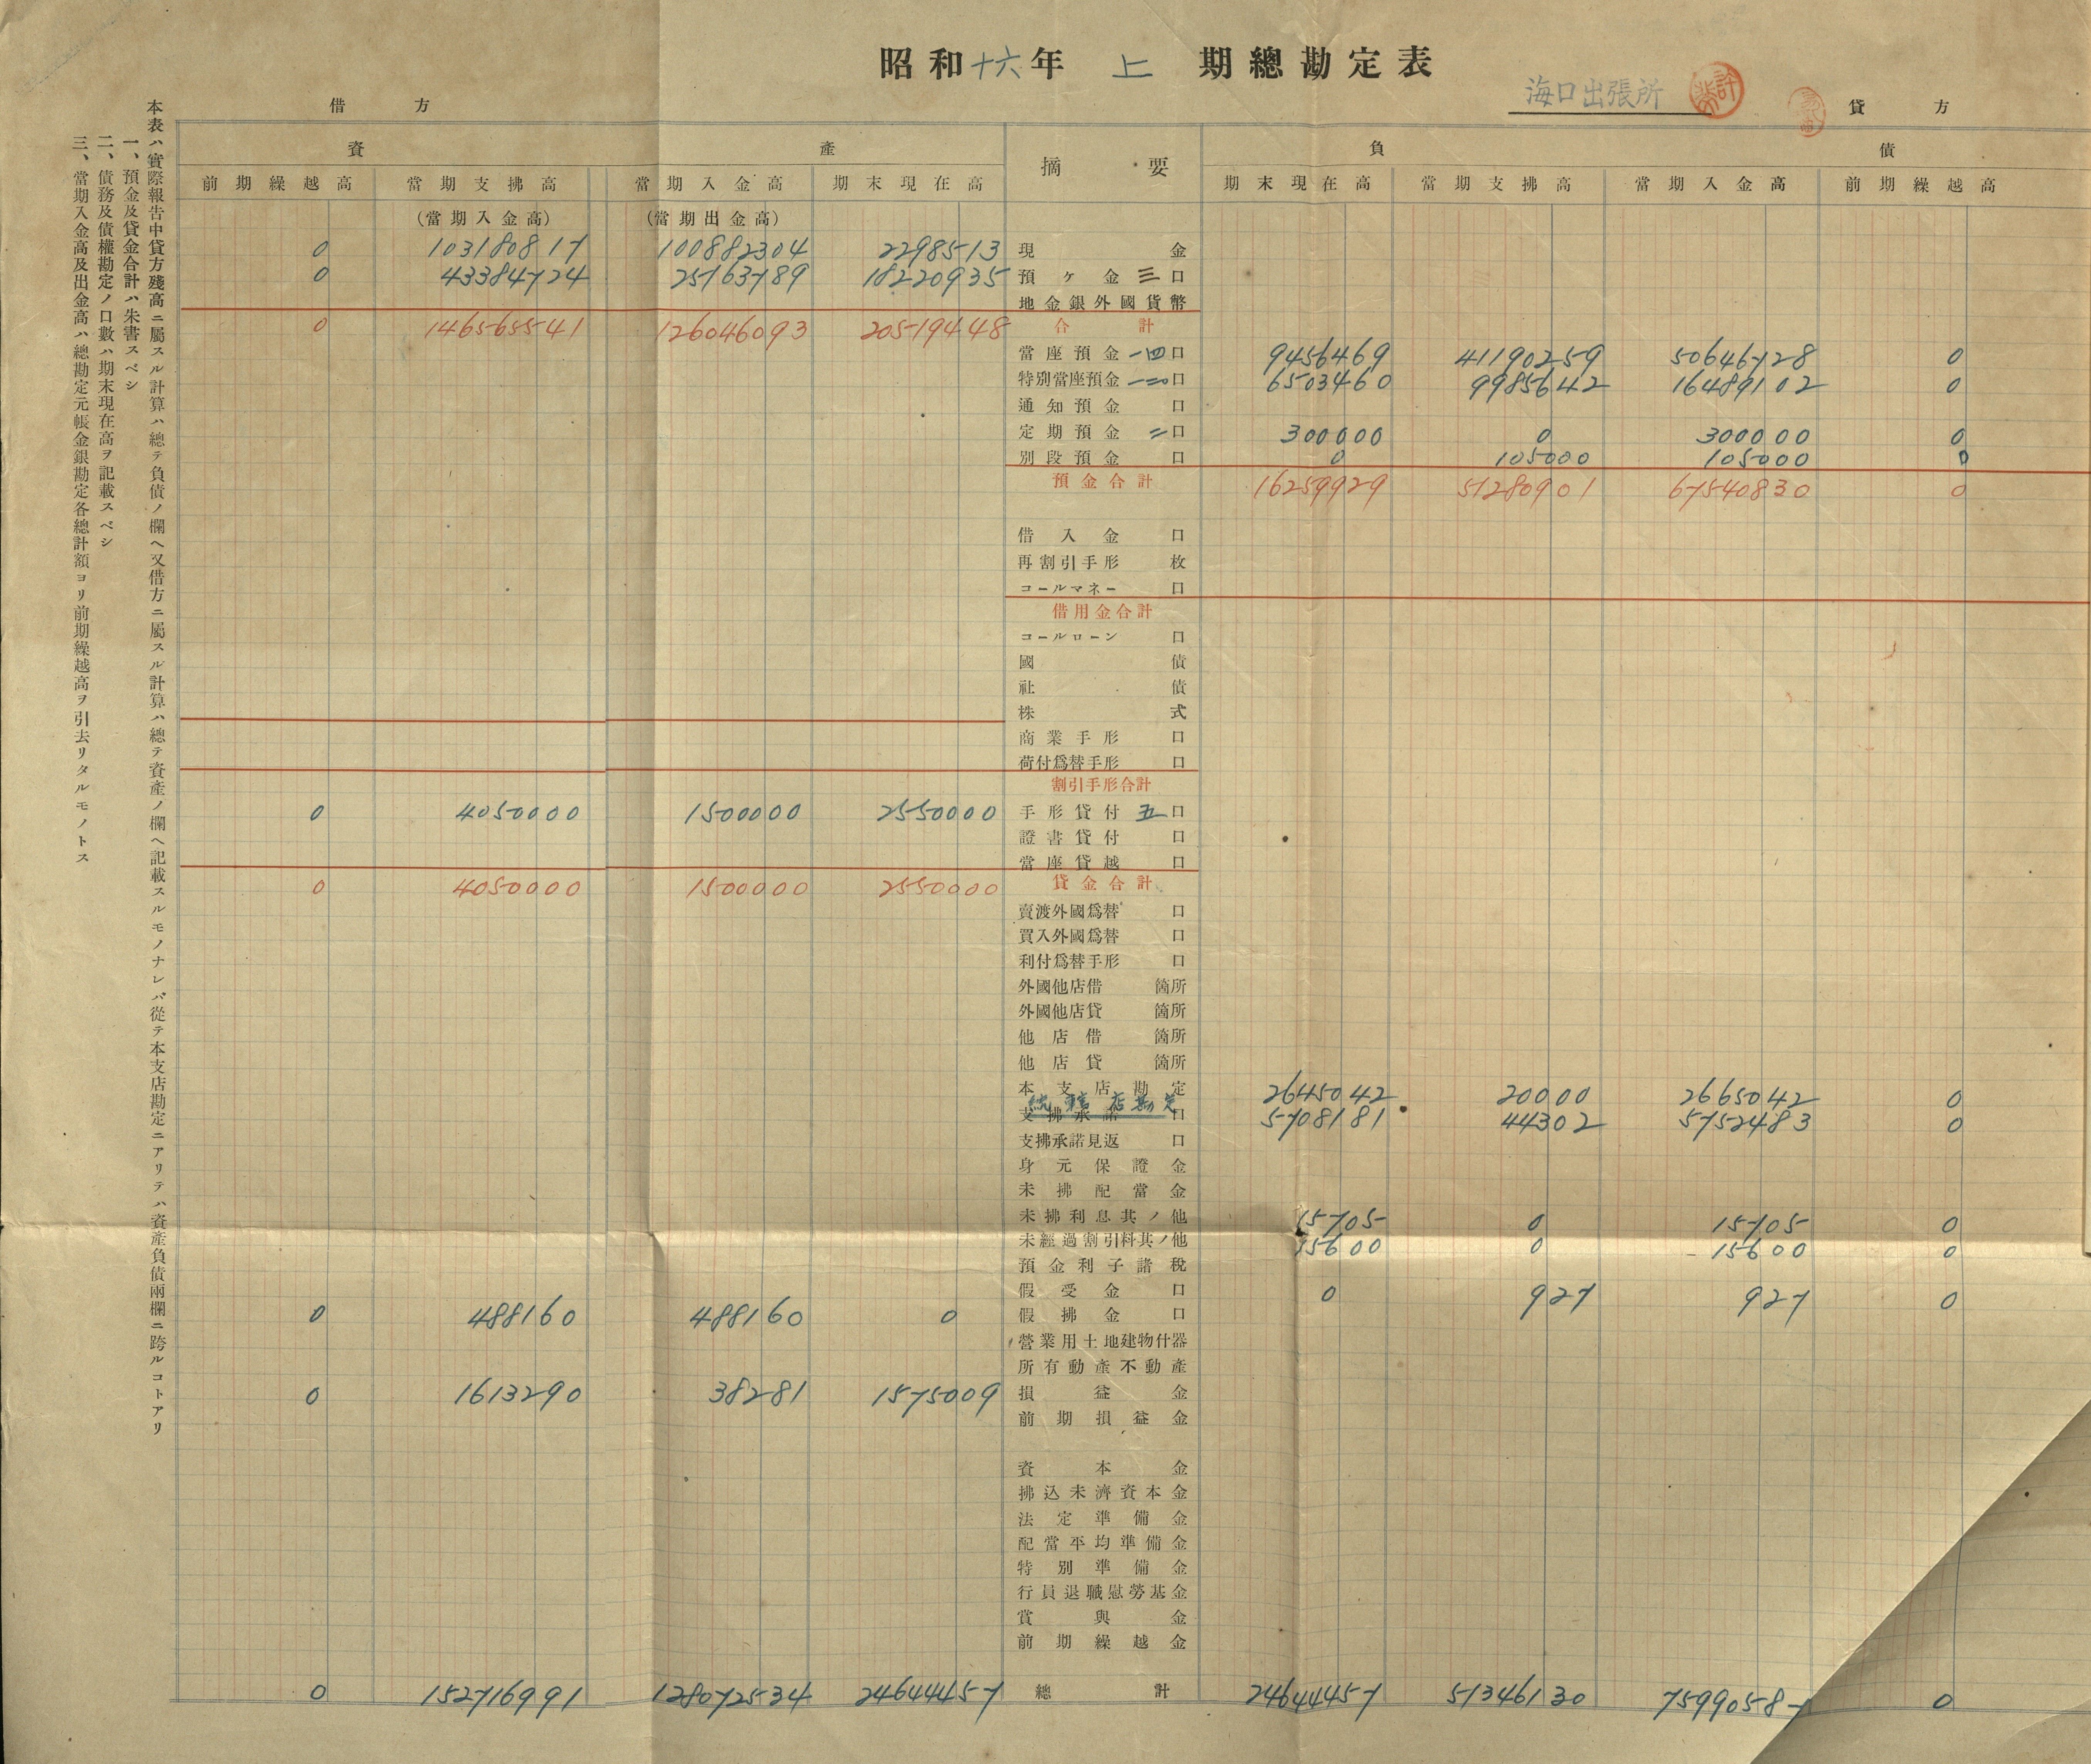 昭和十六年 上 期總勘定表
海口出張所
借方 貸方
資產 摘要 負債
前期繰越高 當期支拂高 當期入金高 期末現在高 期末現在高 當期支拂高 當期入金高 前期繰越高
(當期入金高) (當期出金高)
0 103180817 100882304 2298513 現金
0 43384724 25163789 18220935 預ヶ金 三口
地金銀外國貨幣
0 146565541 126046093 20519448 合計
當座預金 一四口 9456469 41190259 50646728 0
特別當座預金 一二〇口 6503460 9985642 16489102 0
通知預金 口
定期預金 二口 300000 0 300000 0
別段預金 口 0 105000 105000 0
預金合計 16259929 51280901 67540830 0
借入金 口
再割引手形 枚
コールマネー 口
借用金合計
コールローン 口
國債
社債
株式
商業手形 口
荷付爲替手形 口
割引手形合計
0 4050000 1500000 2550000 手形貸付 五口
證書貸付 口
當座貸越 口
0 4050000 1500000 2550000 貸金合計
賣渡外國爲替 口
買入外國爲替 口
利付爲替手形 口
外國他店借 箇所
外國他店貸 箇所
他店借 箇所
他店貸 箇所
本支店勘定 2645042 20000 2665042 0
統轄店勘定
支拂承諾 口 5708181 44302 5752483 0
支拂承諾見返 口
身元保證金
未拂配當金
未拂利息其ノ他 15705 0 15705 0
未經過割引料其ノ他 15600 0 15600 0
預金利子諸稅
假受金 口 0 927 927 0
0 488160 488160 0 假拂金 口
營業用土地建物什器
所有動產不動產
0 1613290 38281 1575009 損益金
前期損益金
資本金
拂込未濟資本金
法定準備金
配當平均準備金
特別準備金
行員退職慰勞基金
賞與金
前期繰越金
0 152716991 128072534 24644457 總計 24644457 51346130 75990587 0
本表ハ實際報告中貸方殘高ニ屬スル計算ハ總テ負債ノ欄ヘ又借方ニ屬スル計算ハ總テ資產ノ欄ヘ記載スルモノナレバ從テ本支店勘定ニアリテハ資產負債兩欄ニ跨ルコトアリ
一、預金及貸金合計ハ朱書スベシ
二、債務及債權勘定ノ口數ハ期末現在高ヲ記載スベシ
三、當期入金高及出金高ハ總勘定元帳金銀勘定各總計額ヨリ前期繰越高ヲ引去リタルモノトス